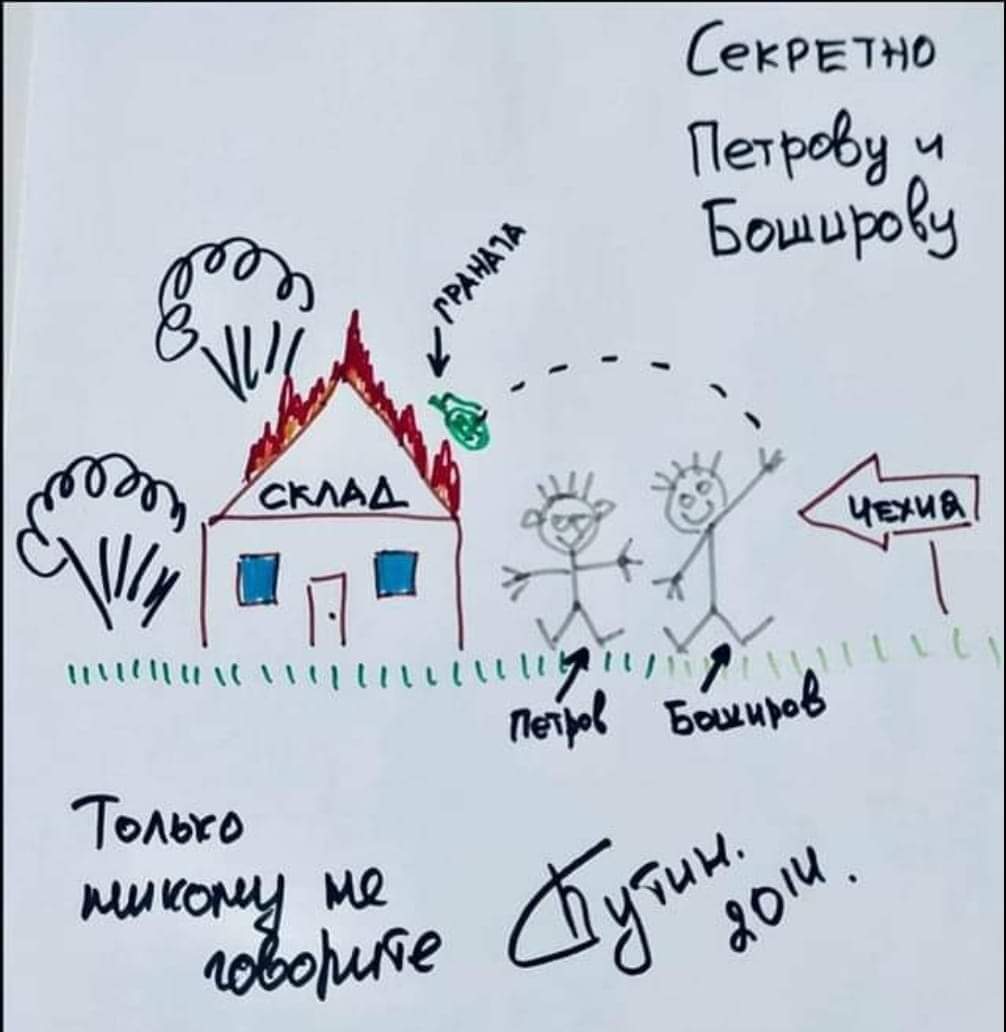 Секретно
Петрову и
Боширову
граната
склад
Чехия
Петров
Боширов
Только
никому не
говорите
Путин.
2014.